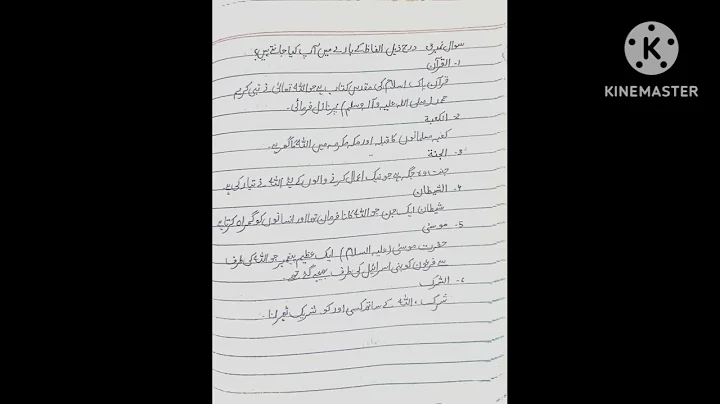 سوال نمبر۹ درج ذیل الفاظ کے بارے میں آپ کیا جانتے ہیں؟
۱۔ القرآن
قرآن پاک اسلام کی مقدس کتاب ہے جو اللہ تعالیٰ نے نبی کریم
محمد (صلی اللہ علیہ وآلہ وسلم) پر نازل فرمائی۔
۲۔ الکعبة
کعبہ مسلمانوں کا قبلہ اور مکہ مکرمہ میں اللہ کا گھر ہے۔
۳۔ الجنة
جنت وہ جگہ ہے جو نیک اعمال کرنے والوں کے لئے اللہ نے تیار کی ہے
۴۔ الشیطان
شیطان ایک جن جو اللہ کا نافرمان تھا اور انسانوں کو گمراہ کرتا ہے
۵۔ موسیٰ
حضرت موسیٰ (علیہ السلام) ایک عظیم پیغمبر جو اللہ کی طرف
سے فرعون کو بنی اسرائیل کی طرف بھیجے گئے تھے۔
۶۔ الشرک
شرک، اللہ کے ساتھ کسی اور کو شریک ٹھہرانا۔
KINEMASTER